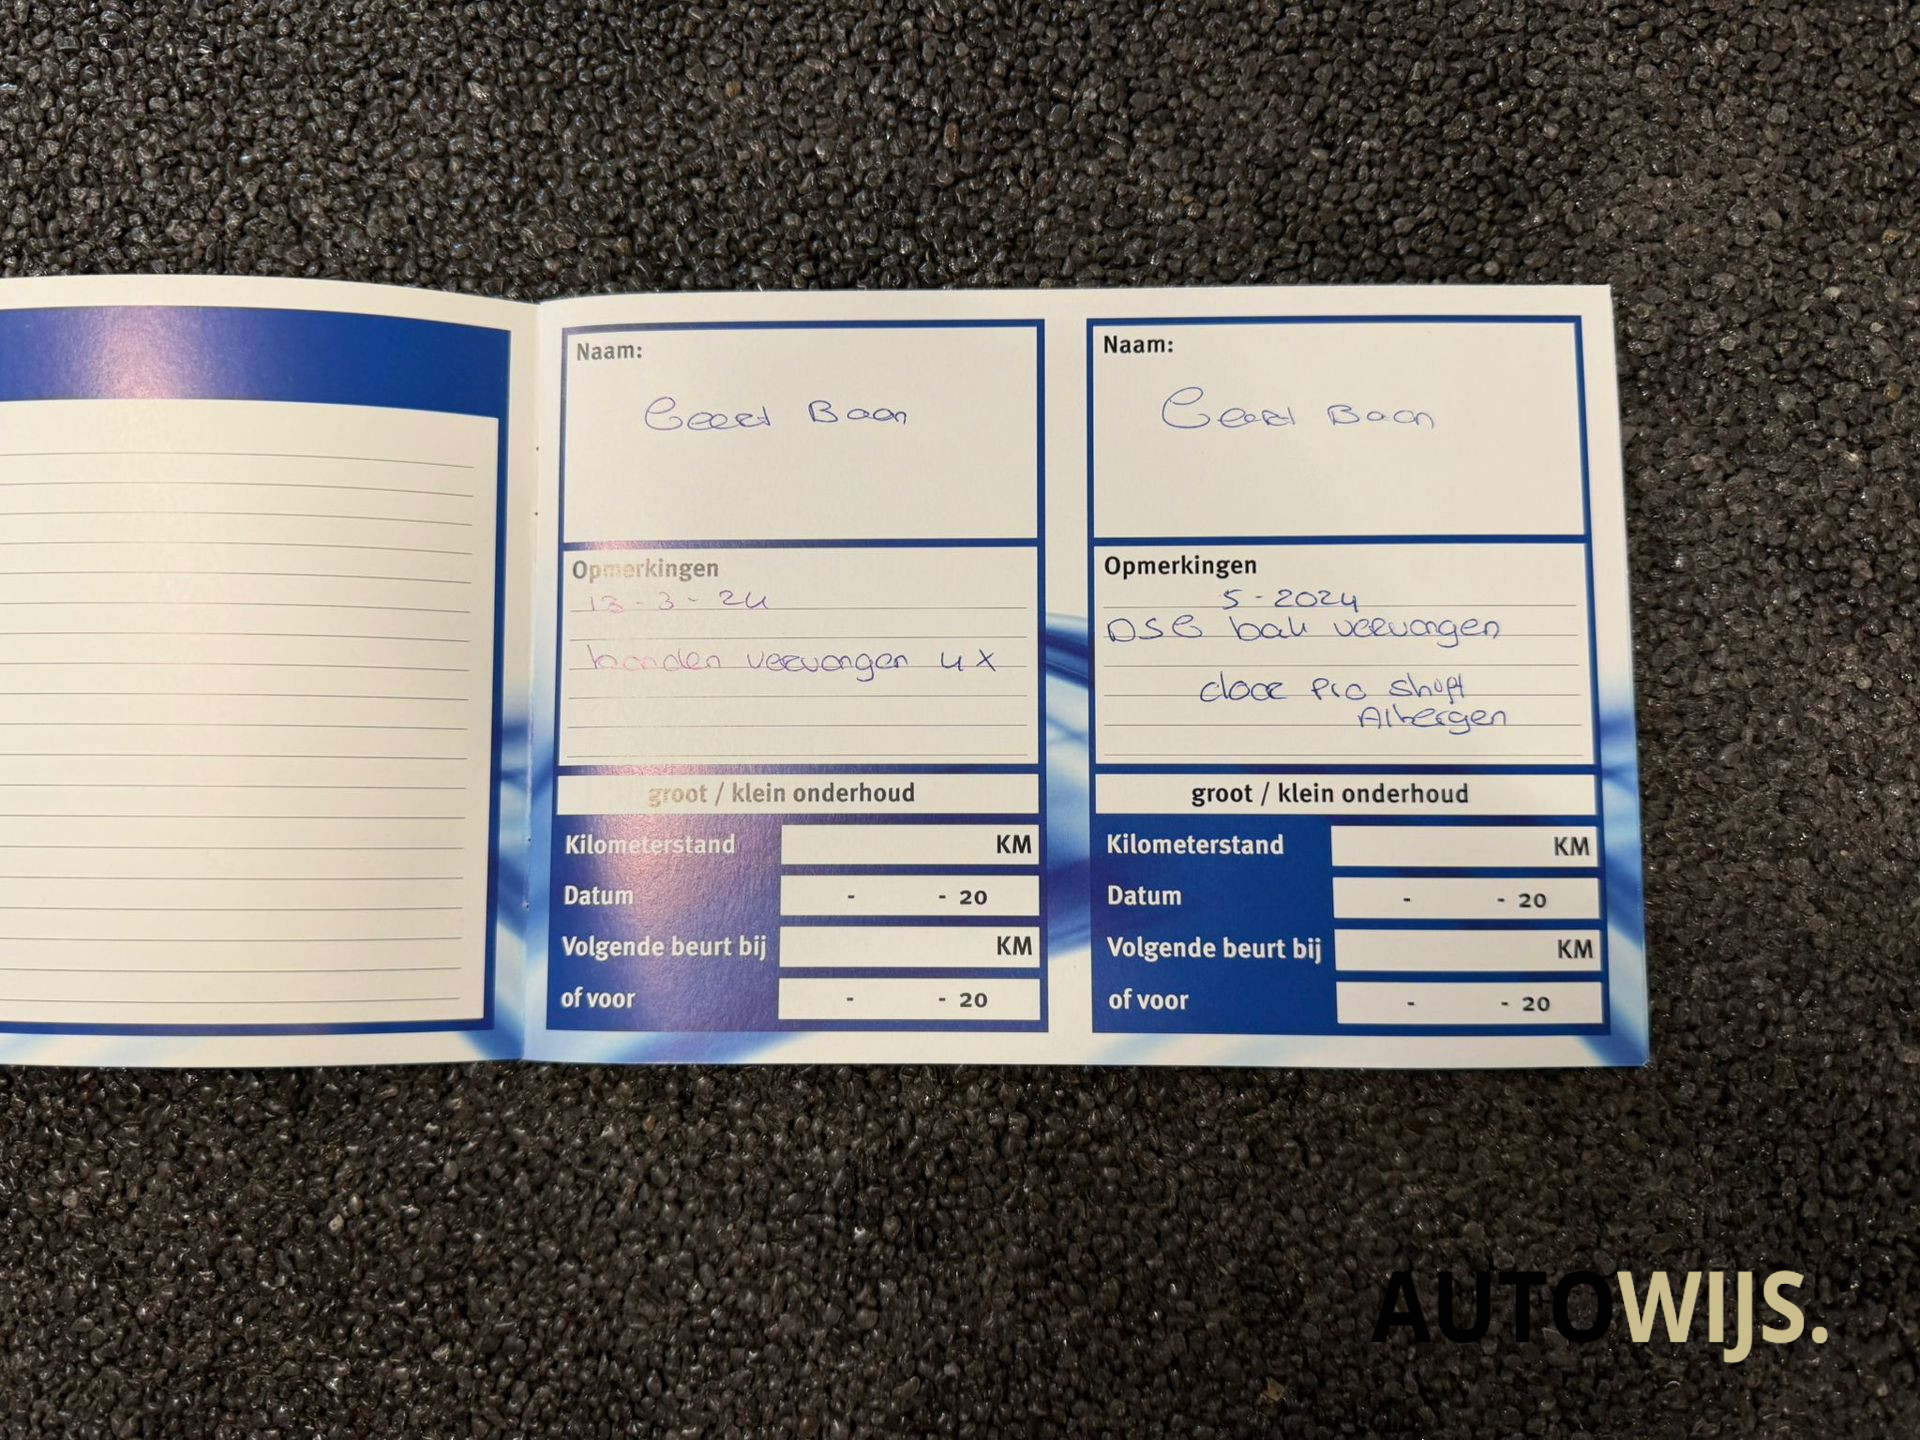 Naam:
Geert Baan
Opmerkingen
13-3-24
banden vervangen 4x
groot / klein onderhoud
Kilometerstand KM
Datum - - 20
Volgende beurt bij KM
of voor - - 20
Naam:
Geert Baan
Opmerkingen
5-2024
DSG bak vervangen
door Pro Shift
Albergen
groot / klein onderhoud
Kilometerstand KM
Datum - - 20
Volgende beurt bij KM
of voor - - 20
AUTOWIJS.